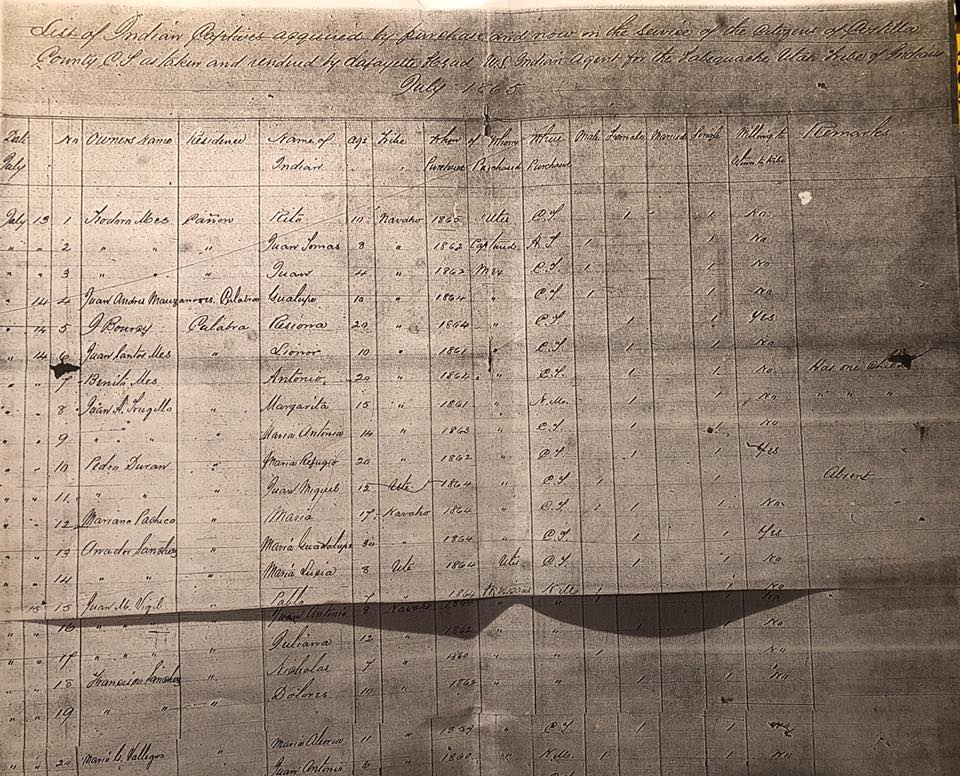 List of Indian Captives acquired by purchase and now in the service of the Citizens of Costilla
County C.T. as taken and rendered by Lafayette Head U.S. Indian Agent for the Tabequache Utah Tribe of Indians
July 1865
Date No Owners Name Residence Name of Age Tribe When of Whom Where Male Female Married Single Willing to Remarks
July Indian Purchased Purchased Purchased return to tribe
July 13 1 Isodoro Mes Cañon Rita 10 Navaho 1865 Utes C.T. 1 1 No
" " 2 " " " Juan Tomas 8 " 1862 Captured N.T. 1 1 No
" " 3 " " " Juan 4 " 1862 Mex C.T. 1 1 No
" 14 4 Juan Andres Manzanares Culabra Gualupe 10 " 1864 " C.T. 1 1 No
" 14 5 J Bourey Culabra 20 " 1864 " C.T. 1 1 Yes
" 14 6 Juan Santos Mes " Lionor 10 " 1861 " C.T. 1 1 No
" " 7 Benito Mes " Antonio 20 " 1861 " C.T. 1 1 No Has one Child
" " 8 Juan A. Trugillo " Margarita 15 " 1861 N.Mo. 1 1 No " " "
" " 9 " " " " Maria Antonia 14 " 1863 C.T. 1 1 No
" " 10 Pedro Duran " Maria Refugio 20 " 1862 " C.T. 1 1 Yes
" " 11 " " " Juan Miguel 12 Ute 1864 " C.T. 1 1 Absent
" " 12 Mariano Pacheco " Maria 17 Navaho 1864 " C.T. 1 1 No
" " 13 Amador Sanchez " Maria Guadalupe 30 " 1864 " C.T. 1 1 Yes
" " 14 " " " Maria Lucia 8 Ute 1864 Utes C.T. 1 1 No
" 15 15 Juan M. Vigil " Pablo 7 Mexicans N.Mo 1 1 No
" " 16 " " " Juan Antonio 8 Navaho No
" " 17 " " " Juliana 12 " 1860 " " 1 No
" " 18 Francisco Sanchez " Nicholas 7 " 1862 " " 1 1 No
" " 19 " " " Dolores 10 "
Maria 11 " " C.T. 1 1
" " 20 Maria G. Vallegos " Juan Antonio 6 " 1860 " N.Mo. 1 1 No